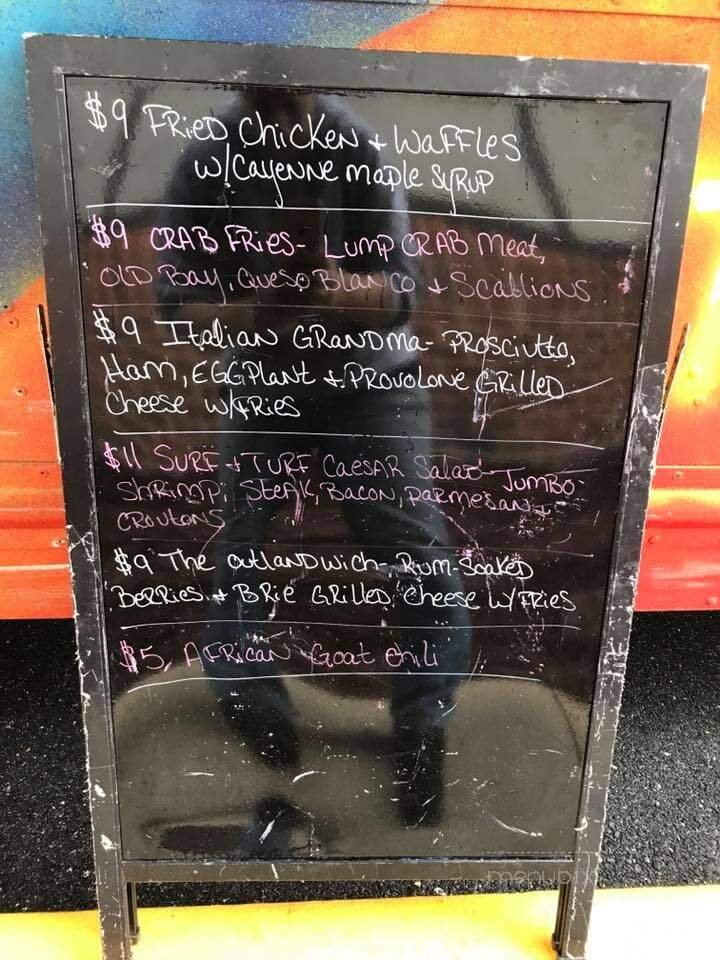 $9 FRIED CHICKEN + WAFFLES
W/CAYENNE MAPLE SYRUP
$9 CRAB FRIES- LUMP CRAB MEAT,
OLD BAY, QUESO BLANCO + SCALLIONS
$9 ITALIAN GRANDMA- PROSCIUTTO,
HAM, EGGPLANT + PROVOLONE GRILLED
CHEESE W/FRIES
$11 SURF + TURF CAESAR SALAD- JUMBO
SHRIMP, STEAK, BACON, PARMESAN +
CROUTONS
$9 THE OUTLANDWICH- RUM-SOAKED
BERRIES + BRIE GRILLED CHEESE W/FRIES
$5 AFRICAN GOAT CHILI
menupix